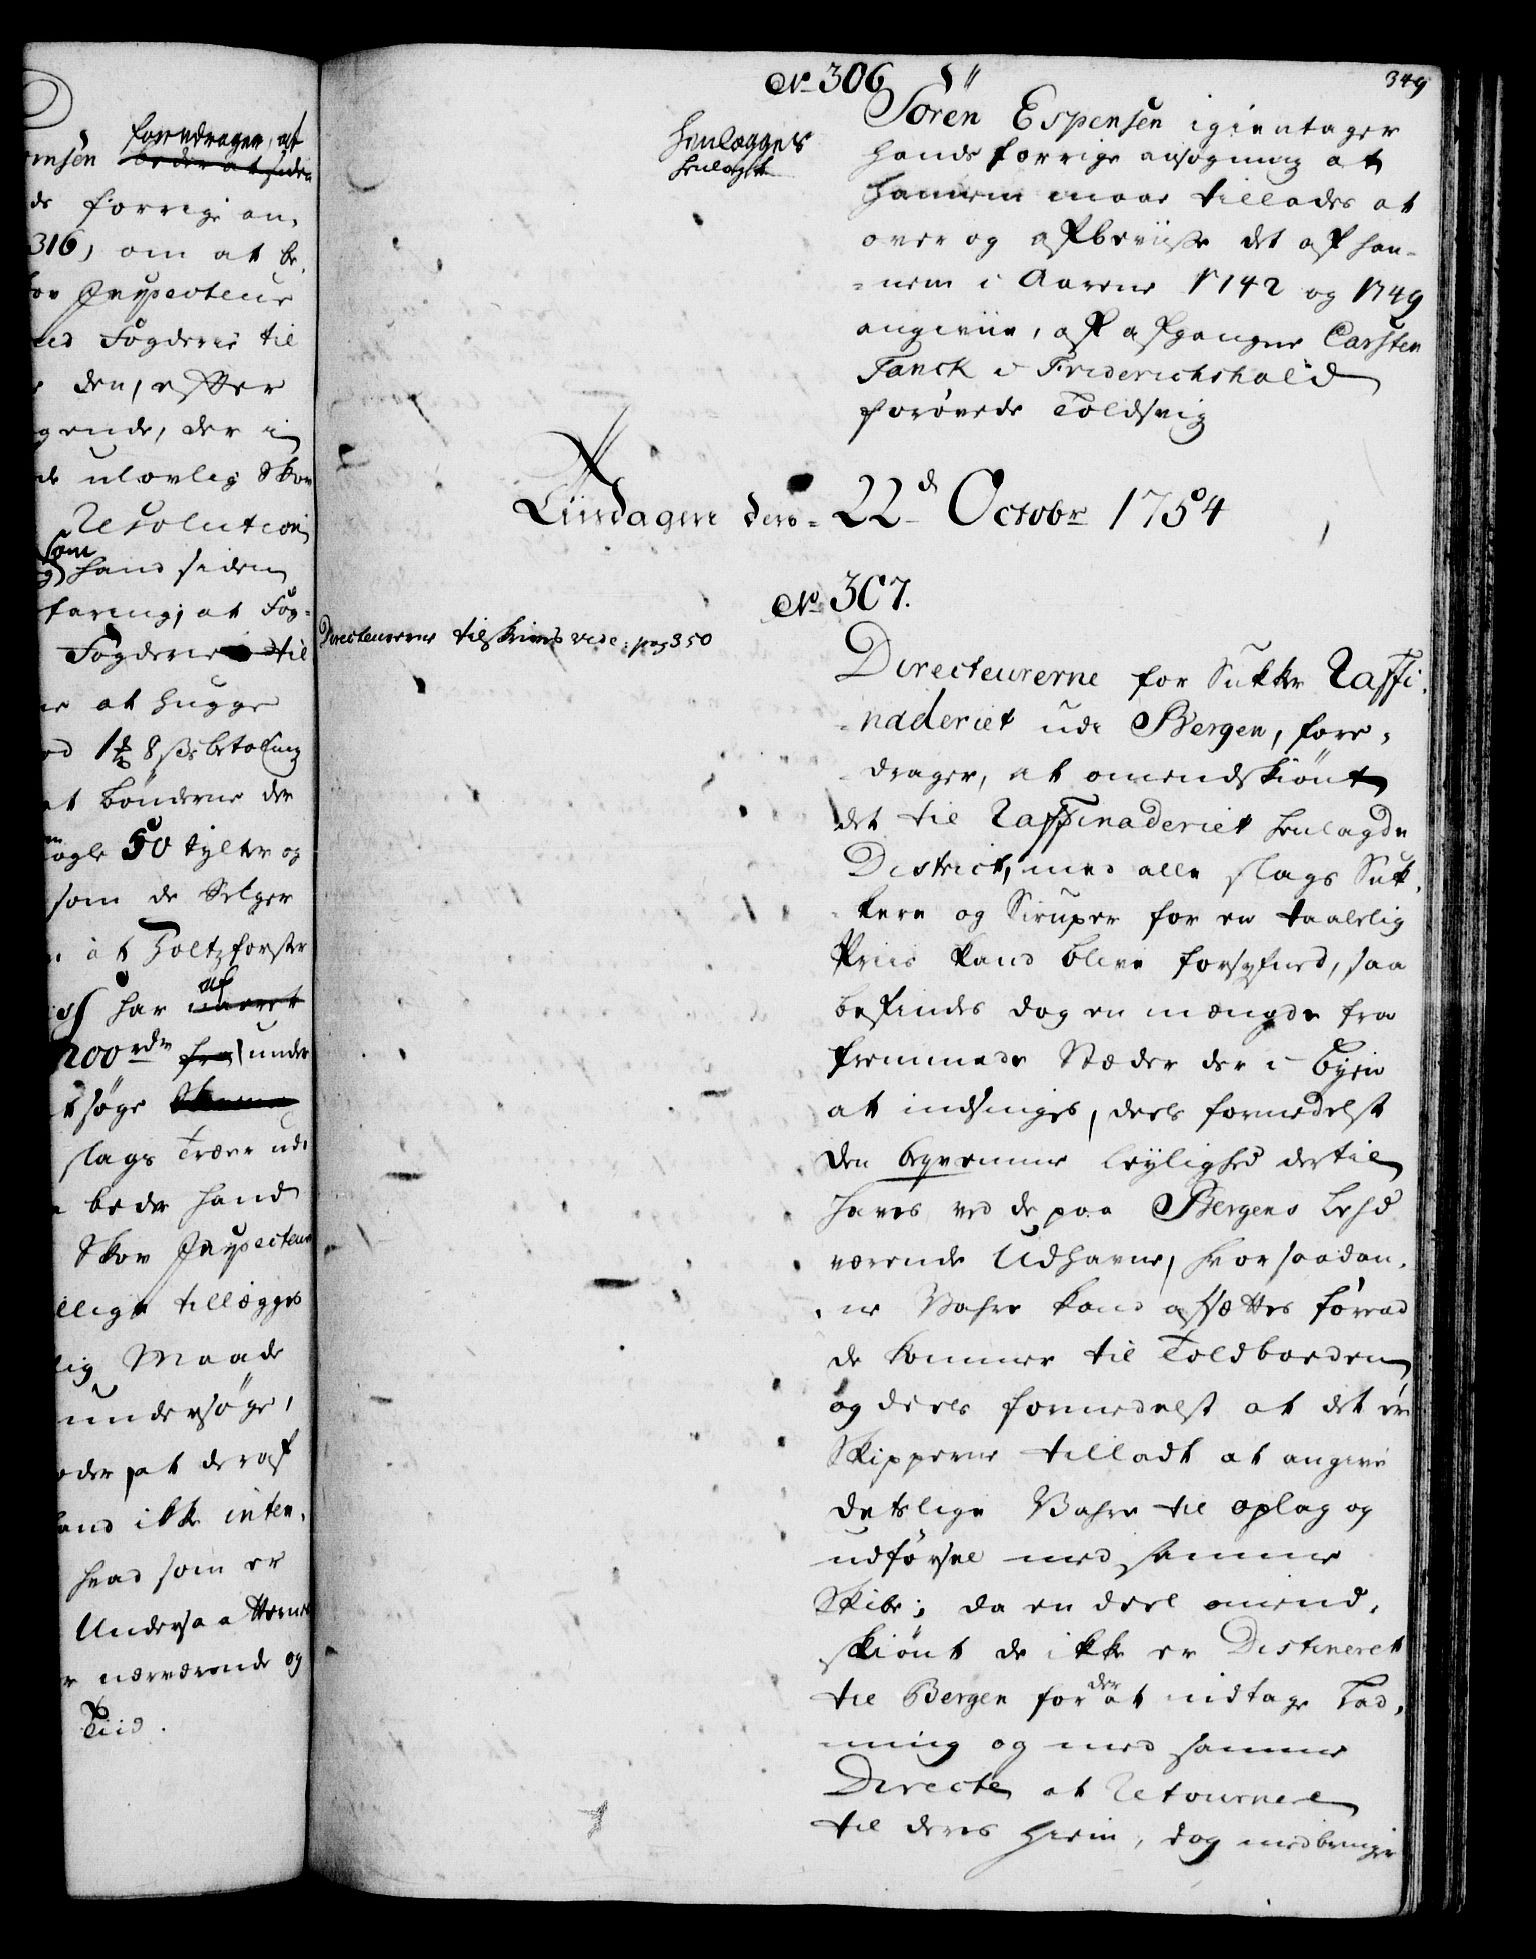 349
No 306
Sören Espensen igientager
hands forrige ansøgning at
hannem maae tillades at
over og afbeviise det af han-
-nem i Aarene 1742 og 1749
angivne, af afgangne Carsten
Tanck i Friderichshald
forøvede Toldsvig
Henlægges
henlagt
Tiisdagen den 22d Octobr 1754
No 307.
Directeurerne tilskrives vide pag 350
Directeurerne for Sukker Raffi-
-naderiet udi Bergen, fore-
-drager, at omendskiönt
det til Raffinaderiet henlagde
District, med alle slags Suk-
-kere og Siruper for en taalelig
Priis kand blive forsyned, saa
befindes dog en mængde fra
fremmede Stæder der i Byen
at indsniges, deels formedelst
den beqvemme leylighed dertil
haves ved de paa Bergens Lehd
værende Udhavne, hvor saadan-
-ne Vahre kand afsættes förend
de kommer til Toldboeden
og deels formedelst at det er
Skipperne tilladt at angive
detslige Vahre til oplag og
udförsel med samme
Skibe; da en deel omend-
skiönt de ikke er Destineret
til Bergen for der at indtage Lad-
-ning og med samme
Directe at Retournere
til deres Hiem, dog medbringe
-ensen foredrager, at
beder at siden
ds forrige an-
316, om at be-
for Inspecteur
ved Fogderie til
den, efter
-gende, der i
de ulovlig Skov
Resolution
som
hand siden
-faring, at Fog-
Fogderie til
at hugge
8 ß betaling
at bönderne der
50 tylter og
som de Selger
at Holtzforster
har været af
200de fra under
-t söge
slags Træer ud-
bede hand
Skov Inspecteur
-llige tillægges
-lig Maade
undersöge,
-der at deraf
hand ikke inten-
hvad som er
Undersaatterne
nærværende og
Tiid.